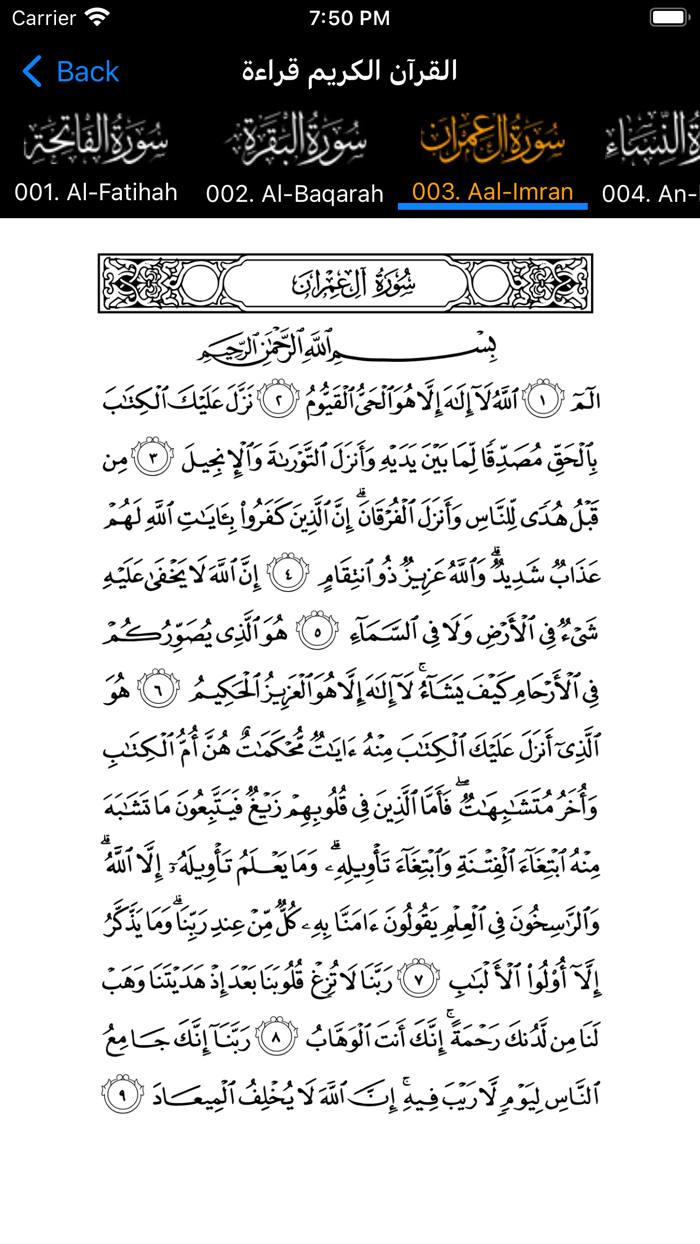 Carrier 7:50 PM
Back القرآن الكريم قراءة
سورة الفاتحة سورة البقرة سورة آل عمران سورة النساء
001. Al-Fatihah 002. Al-Baqarah 003. Aal-Imran 004. An-
سُورَةُ آلِ عِمۡرَانَ
بِسۡمِ ٱللَّهِ ٱلرَّحۡمَٰنِ ٱلرَّحِيمِ
الٓمٓ ١ ٱللَّهُ لَآ إِلَٰهَ إِلَّا هُوَ ٱلۡحَيُّ ٱلۡقَيُّومُ ٢ نَزَّلَ عَلَيۡكَ ٱلۡكِتَٰبَ
بِٱلۡحَقِّ مُصَدِّقٗا لِّمَا بَيۡنَ يَدَيۡهِ وَأَنزَلَ ٱلتَّوۡرَىٰةَ وَٱلۡإِنجِيلَ ٣ مِن
قَبۡلُ هُدٗى لِّلنَّاسِ وَأَنزَلَ ٱلۡفُرۡقَانَۗ إِنَّ ٱلَّذِينَ كَفَرُواْ بِـَٔايَٰتِ ٱللَّهِ لَهُمۡ
عَذَابٞ شَدِيدٞۗ وَٱللَّهُ عَزِيزٞ ذُو ٱنتِقَامٍ ٤ إِنَّ ٱللَّهَ لَا يَخۡفَىٰ عَلَيۡهِ
شَيۡءٞ فِي ٱلۡأَرۡضِ وَلَا فِي ٱلسَّمَآءِ ٥ هُوَ ٱلَّذِي يُصَوِّرُكُمۡ
فِي ٱلۡأَرۡحَامِ كَيۡفَ يَشَآءُۚ لَآ إِلَٰهَ إِلَّا هُوَ ٱلۡعَزِيزُ ٱلۡحَكِيمُ ٦ هُوَ
ٱلَّذِيٓ أَنزَلَ عَلَيۡكَ ٱلۡكِتَٰبَ مِنۡهُ ءَايَٰتٞ مُّحۡكَمَٰتٌ هُنَّ أُمُّ ٱلۡكِتَٰبِ
وَأُخَرُ مُتَشَٰبِهَٰتٞۖ فَأَمَّا ٱلَّذِينَ فِي قُلُوبِهِمۡ زَيۡغٞ فَيَتَّبِعُونَ مَا تَشَٰبَهَ
مِنۡهُ ٱبۡتِغَآءَ ٱلۡفِتۡنَةِ وَٱبۡتِغَآءَ تَأۡوِيلِهِۦۗ وَمَا يَعۡلَمُ تَأۡوِيلَهُۥٓ إِلَّا ٱللَّهُۗ
وَٱلرَّٰسِخُونَ فِي ٱلۡعِلۡمِ يَقُولُونَ ءَامَنَّا بِهِۦ كُلّٞ مِّنۡ عِندِ رَبِّنَاۗ وَمَا يَذَّكَّرُ
إِلَّآ أُوْلُواْ ٱلۡأَلۡبَٰبِ ٧ رَبَّنَا لَا تُزِغۡ قُلُوبَنَا بَعۡدَ إِذۡ هَدَيۡتَنَا وَهَبۡ
لَنَا مِن لَّدُنكَ رَحۡمَةًۚ إِنَّكَ أَنتَ ٱلۡوَهَّابُ ٨ رَبَّنَآ إِنَّكَ جَامِعُ
ٱلنَّاسِ لِيَوۡمٖ لَّا رَيۡبَ فِيهِۚ إِنَّ ٱللَّهَ لَا يُخۡلِفُ ٱلۡمِيعَادَ ٩